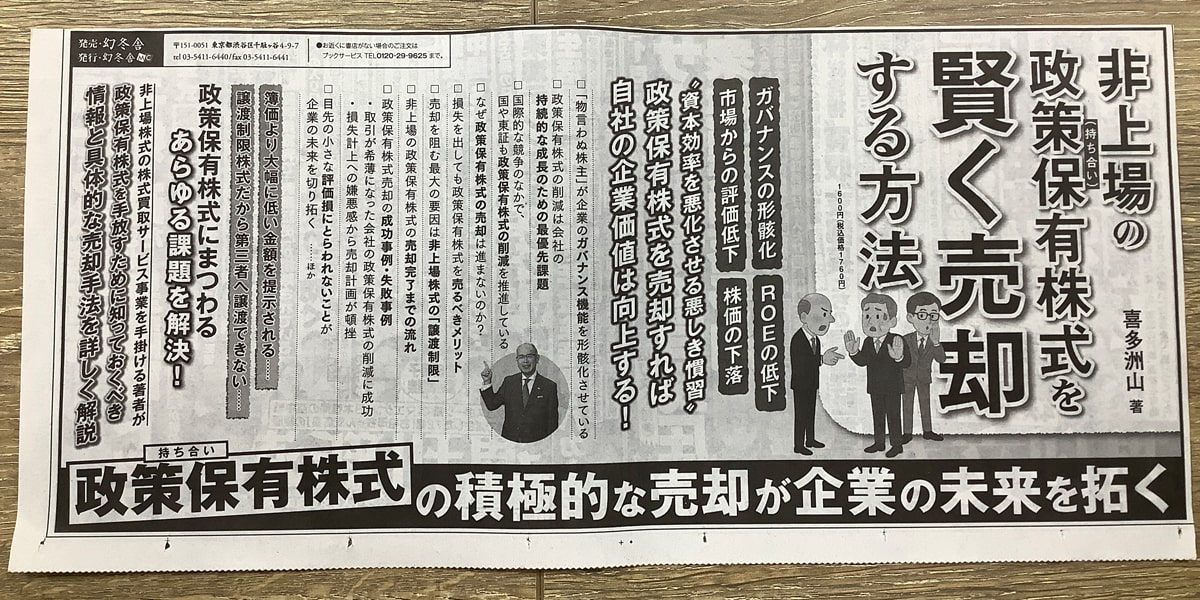 非上場の
政策保有株式を
(持ち合い)
賢く売却
する方法
1600円(税込価格1760円)
喜多洲山 著
ガバナンスの形骸化
ROEの低下
市場からの評価低下
株価の下落
〝資本効率を悪化させる悪しき慣習〟
政策保有株式を売却すれば
自社の企業価値は向上する!
□「物言わぬ株主」が企業のガバナンス機能を形骸化させている
□政策保有株式の削減は会社の
持続的な成長のための最優先課題
□国際的な競争のなかで、
国や東証も政策保有株式の削減を推進している
□なぜ政策保有株式の売却は進まないのか?
□損失を出しても政策保有株式を売るべきメリット
□売却を阻む最大の要因は非上場株式の「譲渡制限」
□非上場の政策保有株式の売却完了までの流れ
□政策保有株式売却の成功事例・失敗事例
・取引が希薄になった会社の政策保有株式の削減に成功
・損失計上への嫌悪感から売却計画が頓挫
□目先の小さな評価損にとらわれないことが
企業の未来を切り拓く ……ほか
簿価より大幅に低い金額を提示される……
譲渡制限株式だから第三者へ譲渡できない……
政策保有株式にまつわる
あらゆる課題を解決!
非上場株式の株式買取サービス事業を手掛ける著者が
政策保有株式を手放すために知っておくべき
情報と具体的な売却手法を詳しく解説
発売・幻冬舎
発行・幻冬舎MC
〒151-0051 東京都渋谷区千駄ヶ谷4-9-7
tel 03-5411-6440/fax 03-5411-6441
●お近くに書店がない場合のご注文は
ブックサービス TEL0120-29-9625まで。
持ち合い
政策保有株式の積極的な売却が企業の未来を拓く